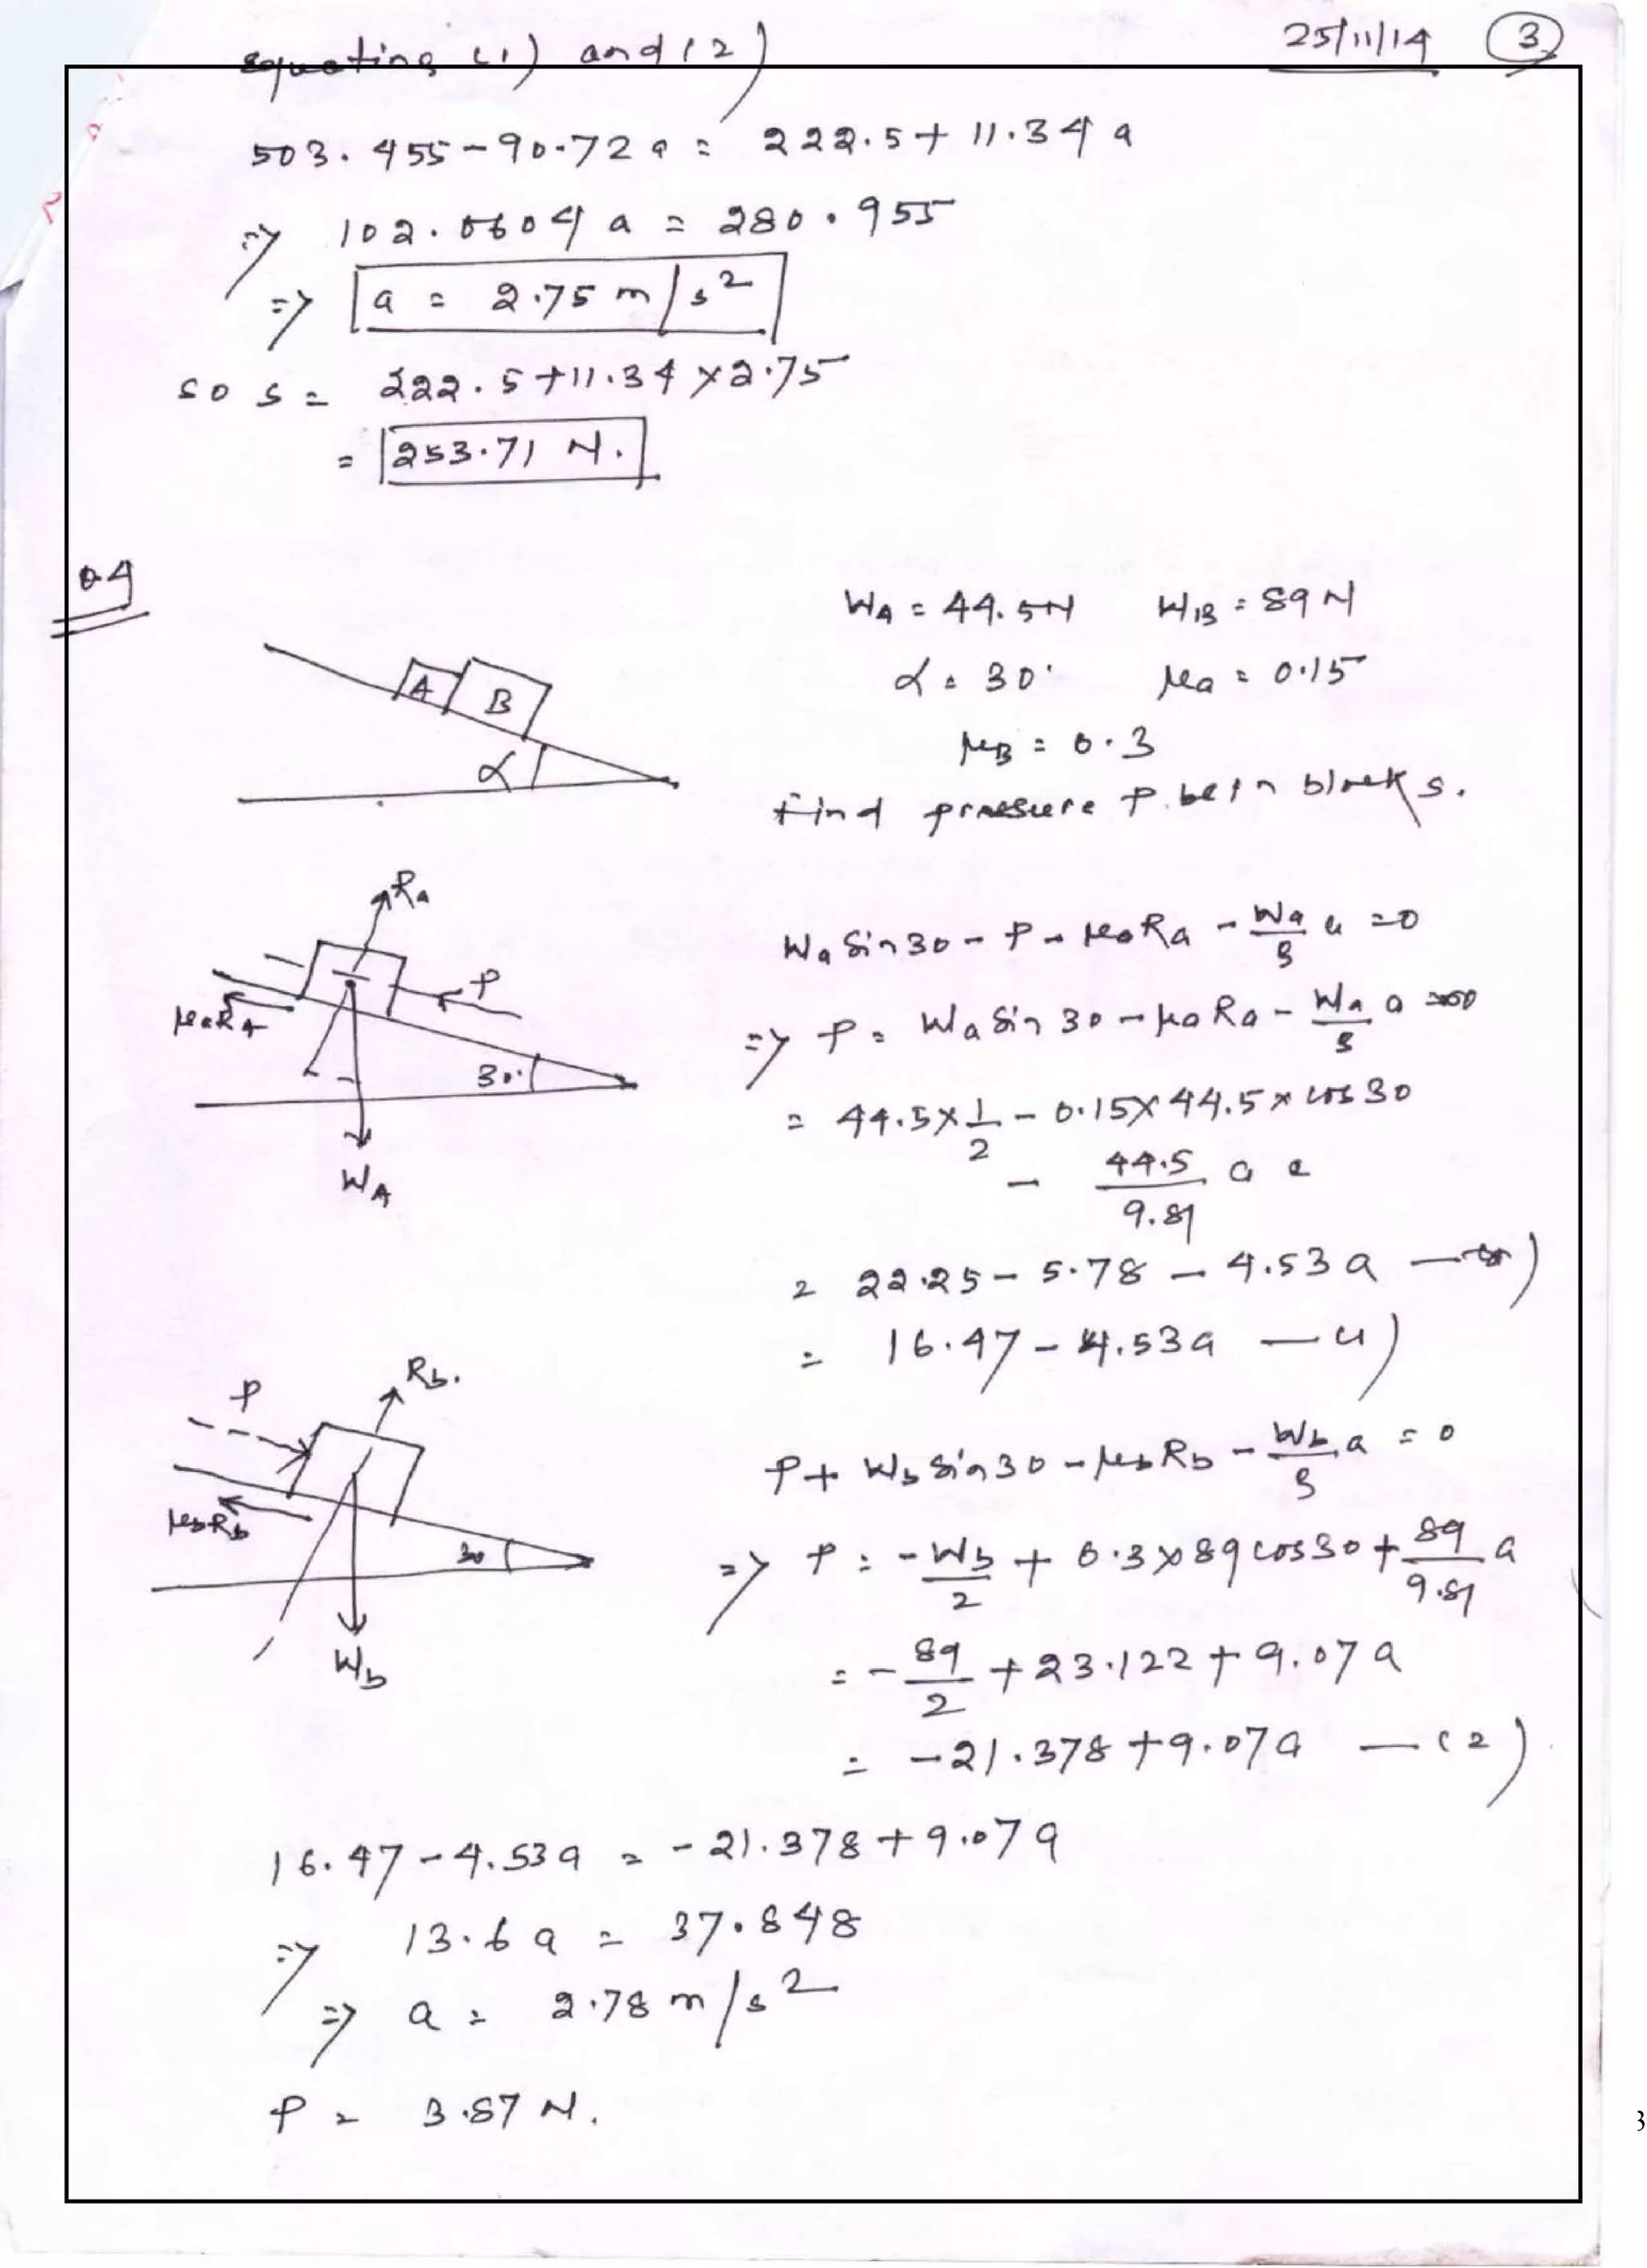 25/11/14 (3)
equating (1) and (2)
503.455 - 90.72 a = 222.5 + 11.34 a
=> 102.0604 a = 280.955
=> a = 2.75 m/s²
so S = 222.5 + 11.34 × 2.75
= 253.71 N.
Q4
W_A = 44.5 N W_B = 89 N
α = 30° μ_a = 0.15
μ_B = 0.3
Find pressure P betn blocks.
A B
α
R_a
P
μ_a R_A
30°
W_A
W_a sin 30 - P - μ_a R_a - W_a/g a = 0
=> P = W_a sin 30 - μ_a R_a - W_a/g a
= 44.5 × 1/2 - 0.15 × 44.5 × cos 30
- 44.5/9.81 a
= 22.25 - 5.78 - 4.53 a
= 16.47 - 4.53 a — (1)
R_b.
P
μ_b R_b
30
W_b
P + W_b sin 30 - μ_b R_b - W_b/g a = 0
=> P = - W_b/2 + 0.3 × 89 cos 30 + 89/9.81 a
= - 89/2 + 23.122 + 9.07 a
= -21.378 + 9.07 a — (2)
16.47 - 4.53 a = -21.378 + 9.07 a
=> 13.6 a = 37.848
=> a = 2.78 m/s²
P = 3.87 N.
3